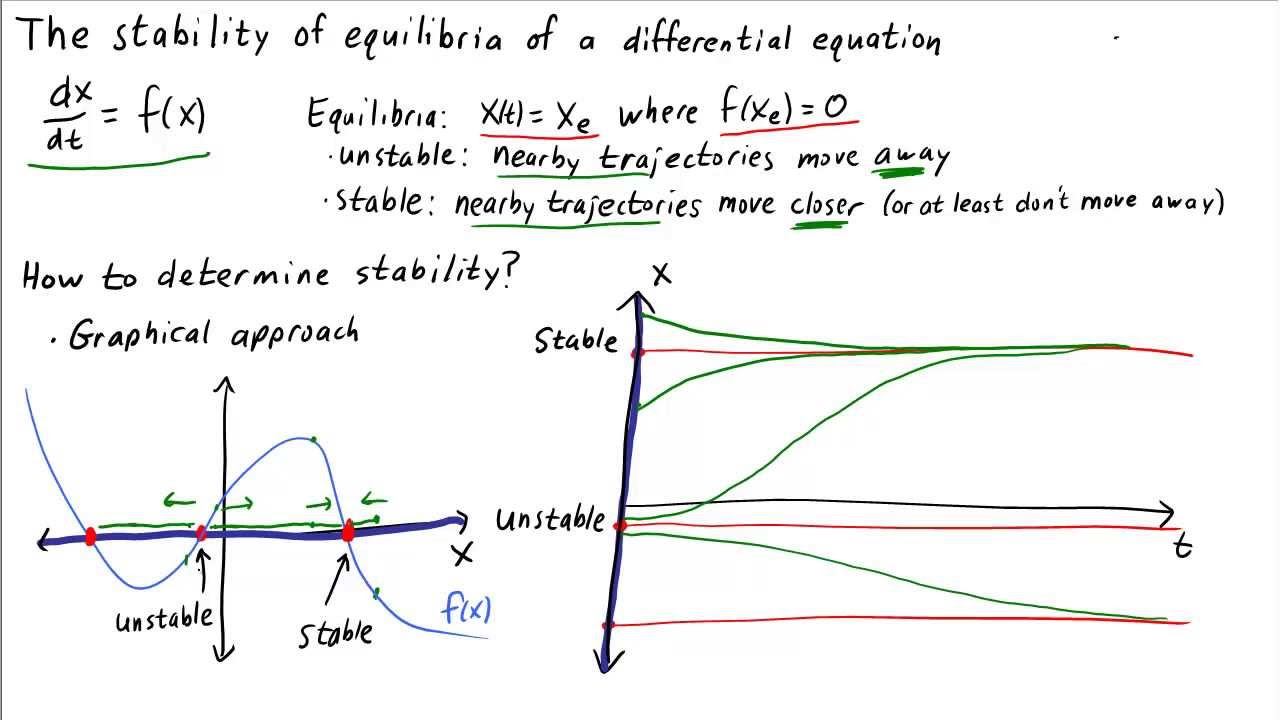 The stability of equilibria of a differential equation
dx/dt = f(x)
Equilibria: x(t) = xₑ where f(xₑ) = 0
· unstable: nearby trajectories move away
· stable: nearby trajectories move closer (or at least don't move away)
How to determine stability?
· Graphical approach
x
Stable
unstable
t
x
unstable
stable
f(x)